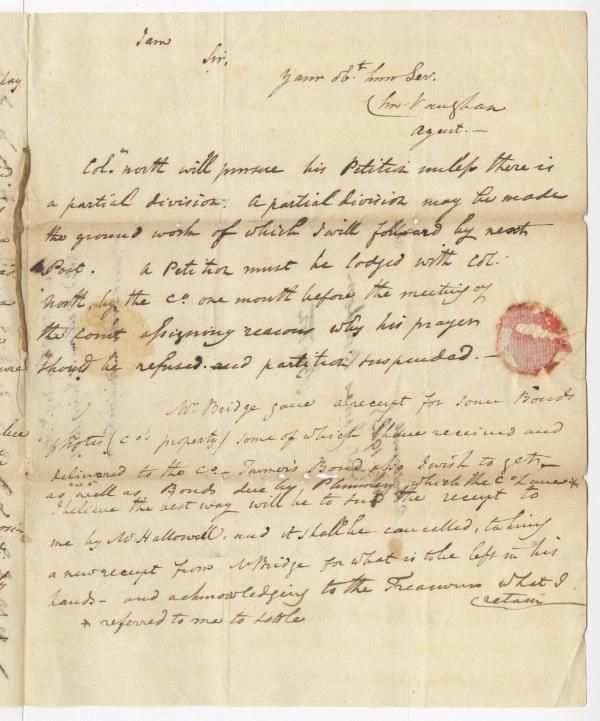 I am
Sir,
Your obt. hm Ser.
Chs Vaughan
Agent. —
Coln. North will pursue his Petition unless there is
a partial division. A partial division may be made
the ground work of which I will forward by next
Post. A Petition must be lodged with Col:
North, by the Co. one month before the meeting of
the court assigning reasons why his prayer
should be refused and partition suspended. —
Mr. Bridge gave a receipt for some Bonds
& notes (Co's property) some of which I have received and
delivered to the Co — Turner's Bond also I wish to get —
as well as Bonds due by Plummer, which the Co have *
I believe the best way will be to send the receipt to
me by Mr Hallowell, and it shall be cancelled, taking
a new receipt from Mr Bridge for what is to be left in his
hands — and acknowledging to the Treasurer what I
retain
* referred to me to settle